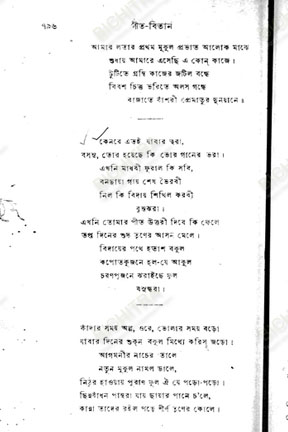 ৭৯৬ গীত-বিতান
আমার লতার প্রথম মুকুল প্রভাত আলোক মাঝে
শুধায় আমারে এসেছি এ কোন্ কাজে।
টুটিতে গ্রন্থি কাজের জটিল বন্ধে
বিবশ চিত্ত ভরিতে অলস গন্ধে
বাজাতে বাঁশরী প্রেমাতুর দুনয়ানে॥
কেনরে এতই যাবার ত্বরা,
বসন্ত, তোর হয়েছে কি ভোর গানের ভরা।
এখনি মাধবী ফুরাল কি সবি,
বনছায়া গায় শেষ ভৈরবী
নিল কি বিদায় শিথিল করবী
বৃন্তঝরা।
এখনি তোমার পীত উত্তরী দিবে কি ফেলে
তপ্ত দিনের শুষ্ক তৃণের আসন মেলে।
বিদায়ের পথে হতাশ বকুল
কপোতকূজনে হল-যে আকুল
চরণপূজনে ঝরাইছে ফুল
বসুন্ধরা।
কাঁদার সময় অল্প, ওরে, ভোলার সময় বড়ো
যাবার দিনের শুকনো বকুল মিথ্যে করিস্ জড়ো।
আগমনীর নাচের তালে
নতুন মুকুল নামল ডালে,
নিঠুর হাওয়ায় পুরাণ ফুল ঐ যে পড়ো-পড়ো।
ছিন্নবাঁধন পান্থরা যায় ছায়ার পানে চ'লে,
কান্না তাদের রইল পড়ে শীর্ণ তৃণের কোলে।